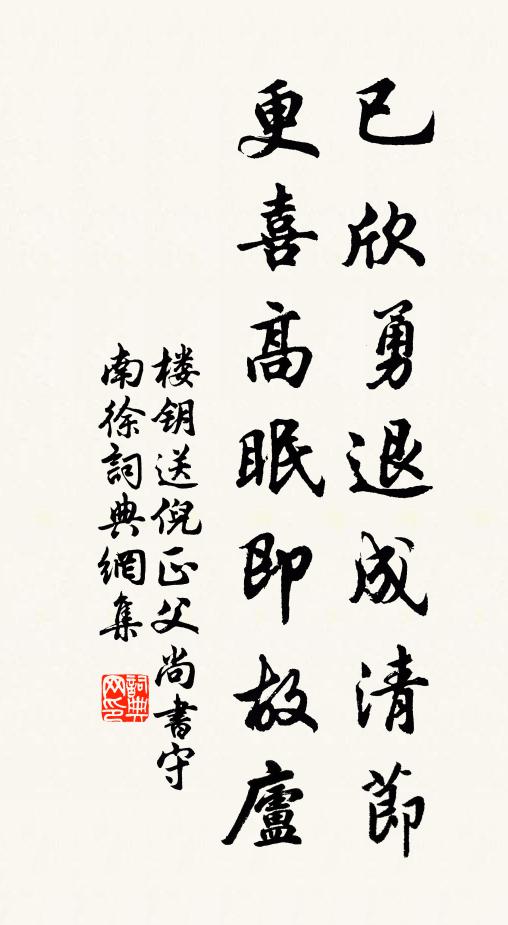 已欣勇退成清節
更喜高眠即故廬
楼钥送倪正父尚書守
南徐詞典網集
詞典网印